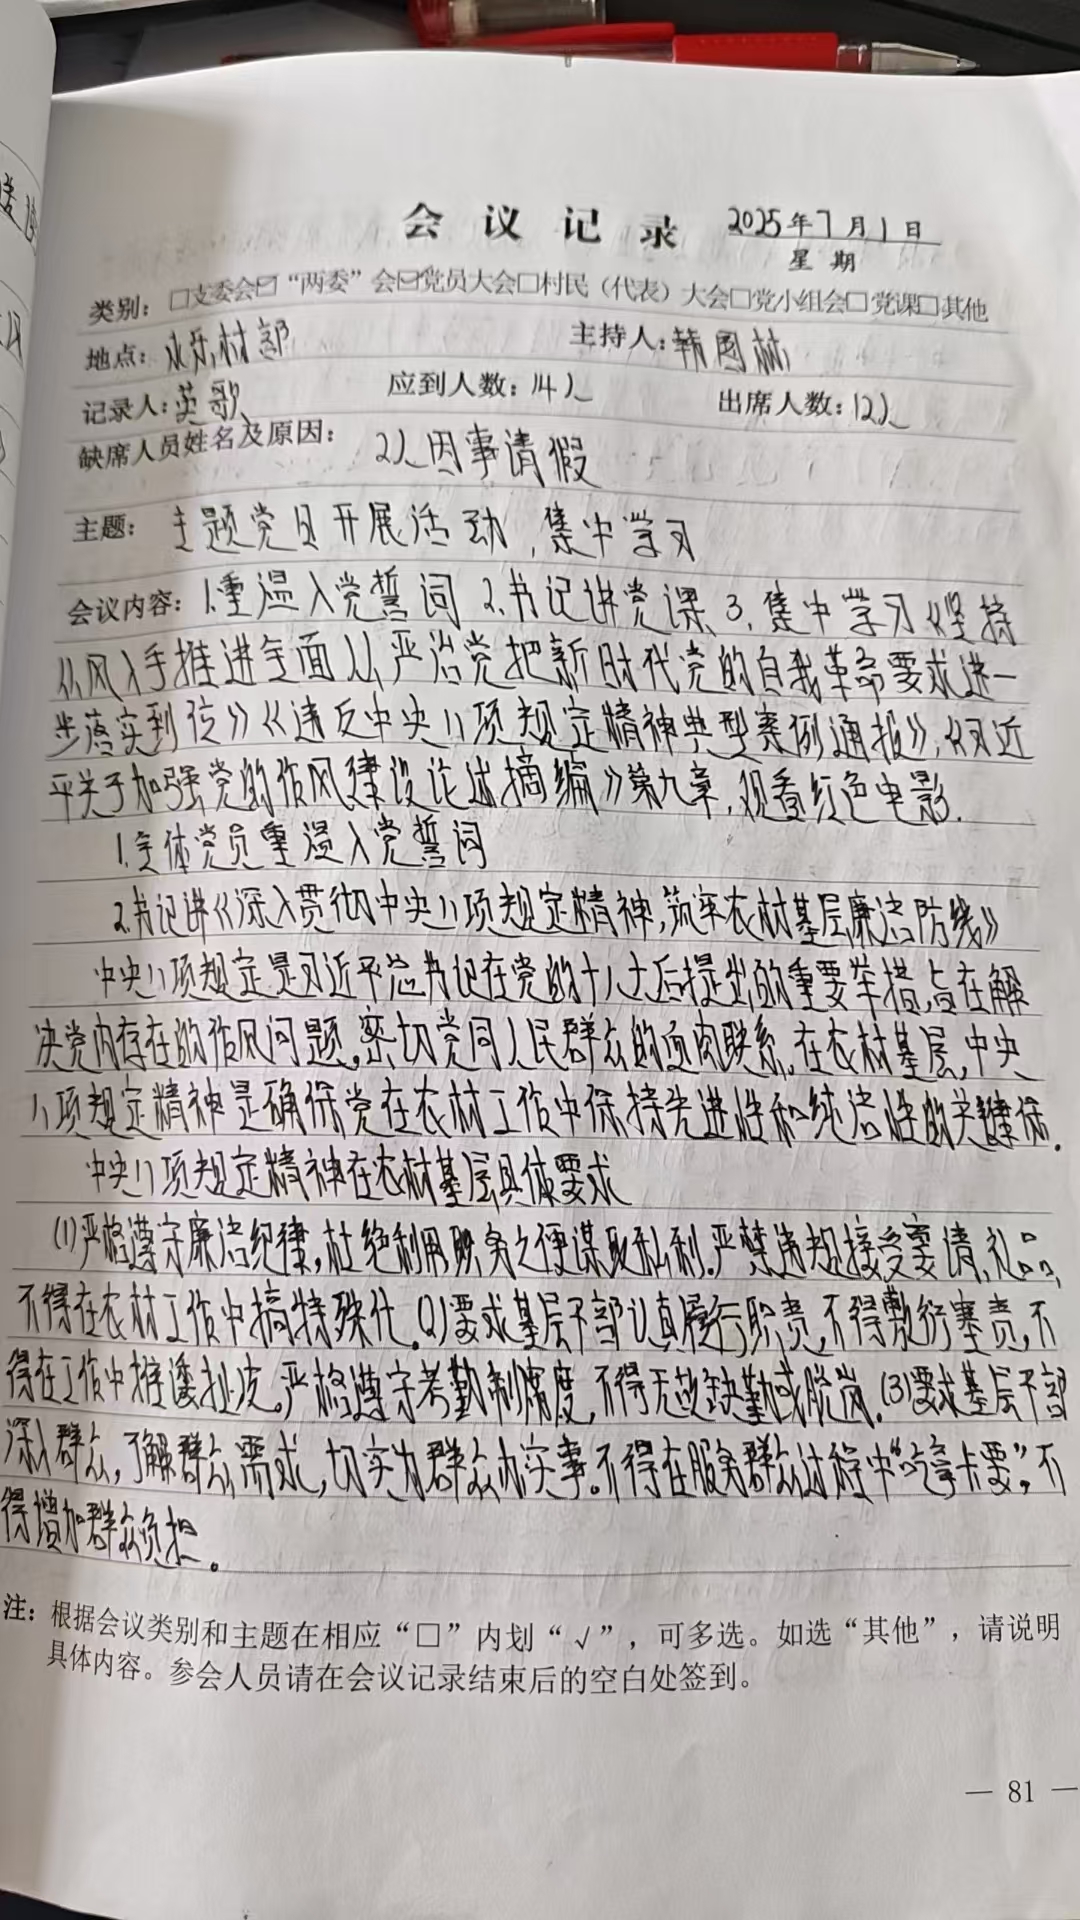 会议记录 2025年7月1日
星期
类别：□支委会☑“两委”会☑党员大会□村民（代表）大会□党小组会□党课□其他
地点：永乐村部 主持人：韩国林
记录人：英歌 应到人数：14人 出席人数：12人
缺席人员姓名及原因： 2人因事请假
主题： 主题党日开展活动，集中学习
会议内容：1.重温入党誓词 2.书记讲党课 3.集中学习《坚持
从风入手推进全面从严治党把新时代党的自我革命要求进一
步落实到位》《违反中央八项规定精神典型案例通报》，《习近
平关于加强党的作风建设论述摘编》第九章，观看红色电影.
1.全体党员重温入党誓词
2.书记讲《深入贯彻中央八项规定精神，筑牢农村基层廉洁防线》
中央八项规定是习近平总书记在党的十八大后提出的重要举措，旨在解
决党内存在的作风问题，密切党同人民群众的血肉联系。在农村基层，中央
八项规定精神是确保党在农村工作中保持先进性和纯洁性的关键保.
中央八项规定精神在农村基层具体要求
(1)严格遵守廉洁纪律，杜绝利用职务之便谋取私利。严禁违规接受宴请、礼品，
不得在农村工作中搞特殊化。(2)要求基层干部认真履行职责，不得敷衍塞责，不
得在工作中推诿扯皮。严格遵守考勤制度，不得无故缺勤或脱岗。(3)要求基层干部
深入群众，了解群众需求，切实为群众办实事。不得在服务群众过程中“吃拿卡要”，不
得增加群众负担。
注：根据会议类别和主题在相应“□”内划“√”，可多选。如选“其他”，请说明
具体内容。参会人员请在会议记录结束后的空白处签到。
— 81 —